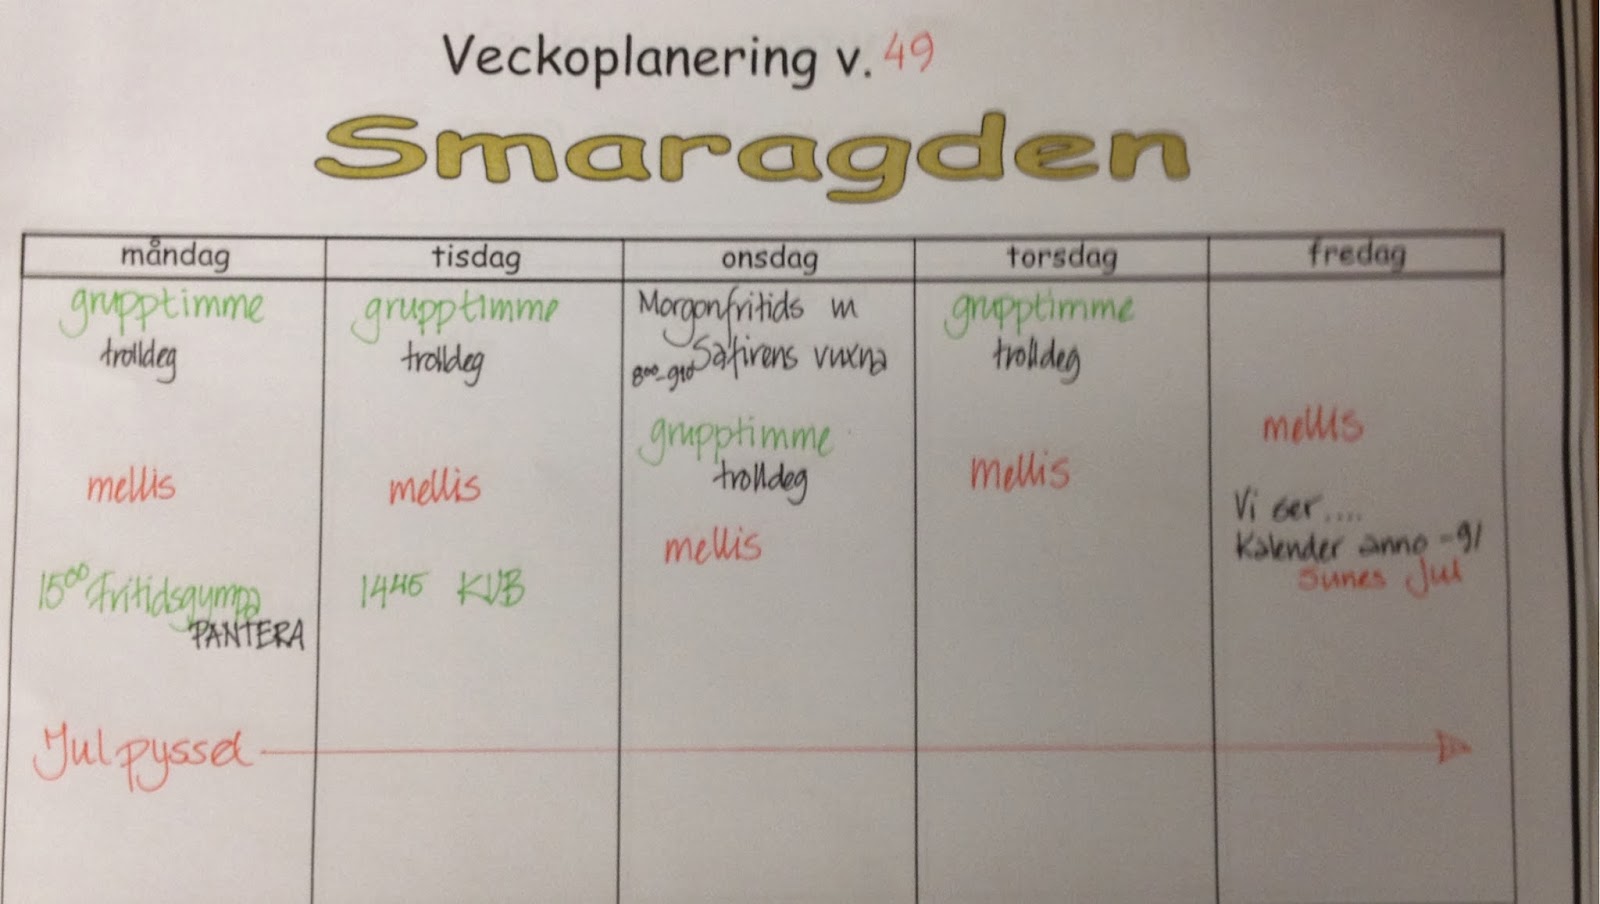 Veckoplanering v. 49
Smaragden
måndag tisdag onsdag torsdag fredag
grupptimme
trolldeg
mellis
15⁰⁰ Fritidsgympa
PANTERA
grupptimme
trolldeg
mellis
14⁴⁵ KUB
Morgonfritids m
8⁰⁰-9¹⁰ Safirens vuxna
grupptimme
trolldeg
mellis
grupptimme
trolldeg
mellis
mellis
Vi ser....
Kalender anno -91
Sunes Jul
Julpyssel